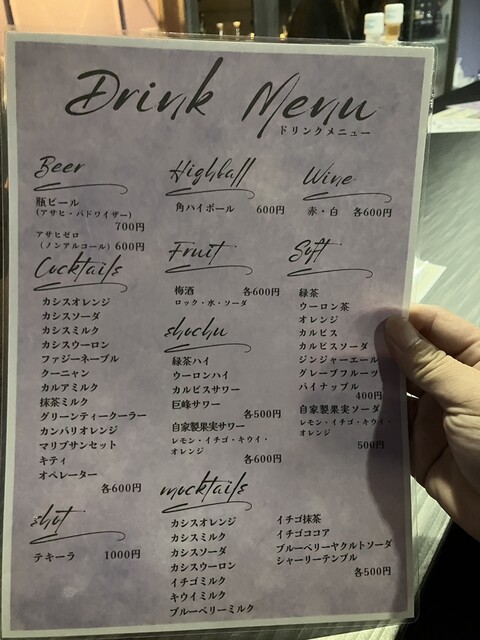 Drink Menu
ドリンクメニュー
Beer
瓶ビール
(アサヒ・バドワイザー)
700円
アサヒゼロ
(ノンアルコール) 600円
Highball
角ハイボール 600円
Wine
赤・白 各600円
Cocktails
カシスオレンジ
カシスソーダ
カシスミルク
カシスウーロン
ファジーネーブル
クーニャン
カルアミルク
抹茶ミルク
グリーンティークーラー
カンパリオレンジ
マリブサンセット
キティ
オペレーター
各600円
Fruit
梅酒 各600円
ロック・水・ソーダ
shochu
緑茶ハイ
ウーロンハイ
カルピスサワー
巨峰サワー
各500円
自家製果実サワー
レモン・イチゴ・キウイ・
オレンジ
各600円
Soft
緑茶
ウーロン茶
オレンジ
カルピス
カルピスソーダ
ジンジャーエール
グレープフルーツ
パイナップル
400円
自家製果実ソーダ
レモン・イチゴ・キウイ・
オレンジ
500円
shot
テキーラ 1000円
mocktails
カシスオレンジ
カシスミルク
カシスソーダ
カシスウーロン
イチゴミルク
キウイミルク
ブルーベリーミルク
イチゴ抹茶
イチゴココア
ブルーベリーヤクルトソーダ
シャーリーテンプル
各500円